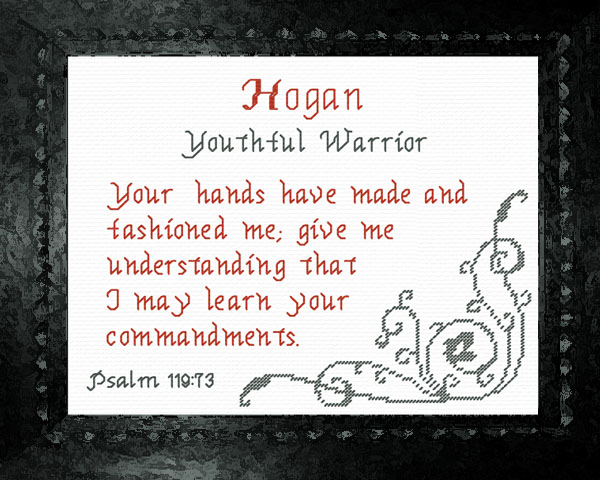 Hogan
Youthful Warrior
Your hands have made and
fashioned me; give me
understanding that
I may learn your
commandments.
Psalm 119:73